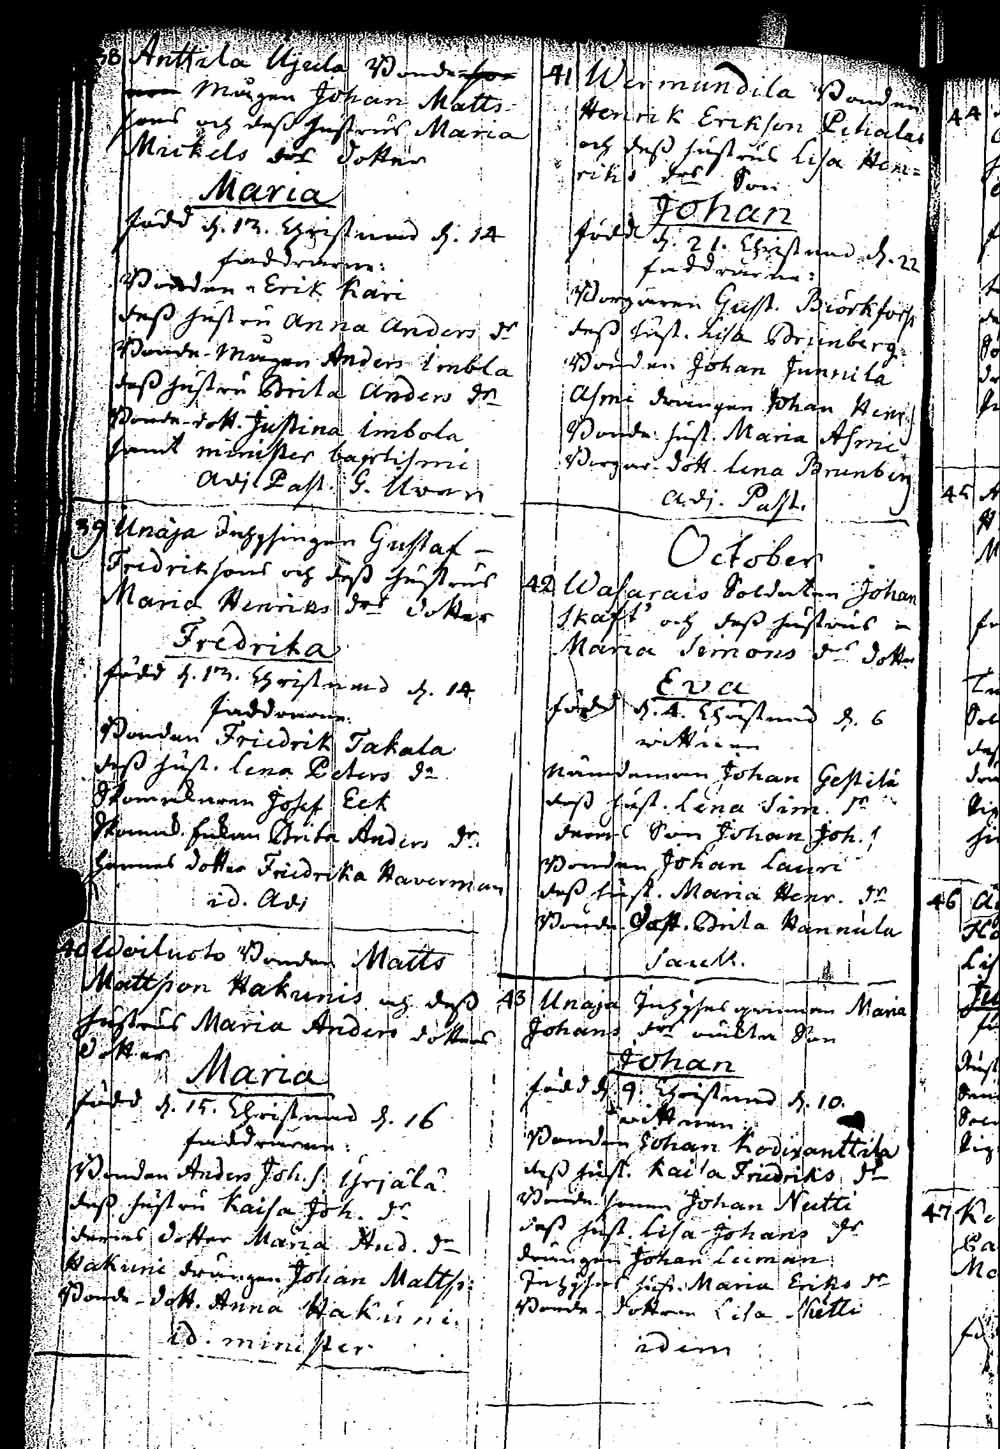 38 Anttila Ujula Bonde
Mågen Johan Matts-
sons och dess hustrus Maria
Mickels drs Dotter
Maria
född d. 13. Christnad d. 14
faddrarne:
Bonden Erik Kari
dess hustru Anna Anders dr
Bonde-Mågen Anders Imbola
dess hustru Brita Anders dr
Bonde-dott. Justina Imbola
samt minister baptismi
Adj. Past. G.
39 Unaja Inhysingen Gustaf
Fredrikssons och dess hustrus
Maria Henriks drs Dotter
Fredrika
född d. 13. Christnad d. 14
faddrarne:
Bonden Friedrik Takala
dess hust. Lena Peters dr
Skomakaren Josef Eek
Skomak. Enkan Brita Anders dr
hennes dotter Friedrika Haverman
id. Adj
40 Woiluoto Bonden Matts
Mattsson Hakunis och dess
hustrus Maria Anders dotters
Dotter
Maria
född d. 15. Christnad d. 16
faddrarne:
Bonden Anders Joh. S. Yrjälä
dess hustru Kaisa Joh. dr
deras dotter Maria And. dr
Hakuni drängen Johan Matts s.
Bonde-dott. Anna Hakuni.
id. minister
41 Wermundila Bonden
Henrik Erikson Pihalas
och dess hustrus Lisa Hen=
riks drs Son
Johan
född d. 21. Christnad d. 22
faddrarne:
Borgaren Gust. Biörkfors
dess hust. Lisa Brunberg
Bonden Johan Junnila
Asmi drängen Johan Henr. s
Bonde hust. Maria Asmi
Borgar-dott. Lena Brunberg
Adj. Past.
October
42 Wasarais Soldaten Johan
Skaft och dess hustrus
Maria Simons drs dotter
Eva
född d. 4. Christnad d. 6
wittnen
Nämdeman Johan Gestilä
dess hust. Lena Sim. dr
deras Son Johan Joh. s
Bonden Johan Lauri
dess hust. Maria Henr. dr
Bonde Dott. Brita Hannula
43 Unaja Inhyses qwinnan Maria
Johans drs oäckta Son
Johan
född d. 9. Christnad d. 10.
wittnen
Bonden Johan Kodixanttila
dess hust. Kaisa Friedriks dr
Bonde sonen Johan Neitti
dess hust. Lisa Johans dr
drängen Johan Leiman
Inhyses hust. Maria Eriks dr
Bonde-dottren Lisa
idem
44
45
46
47